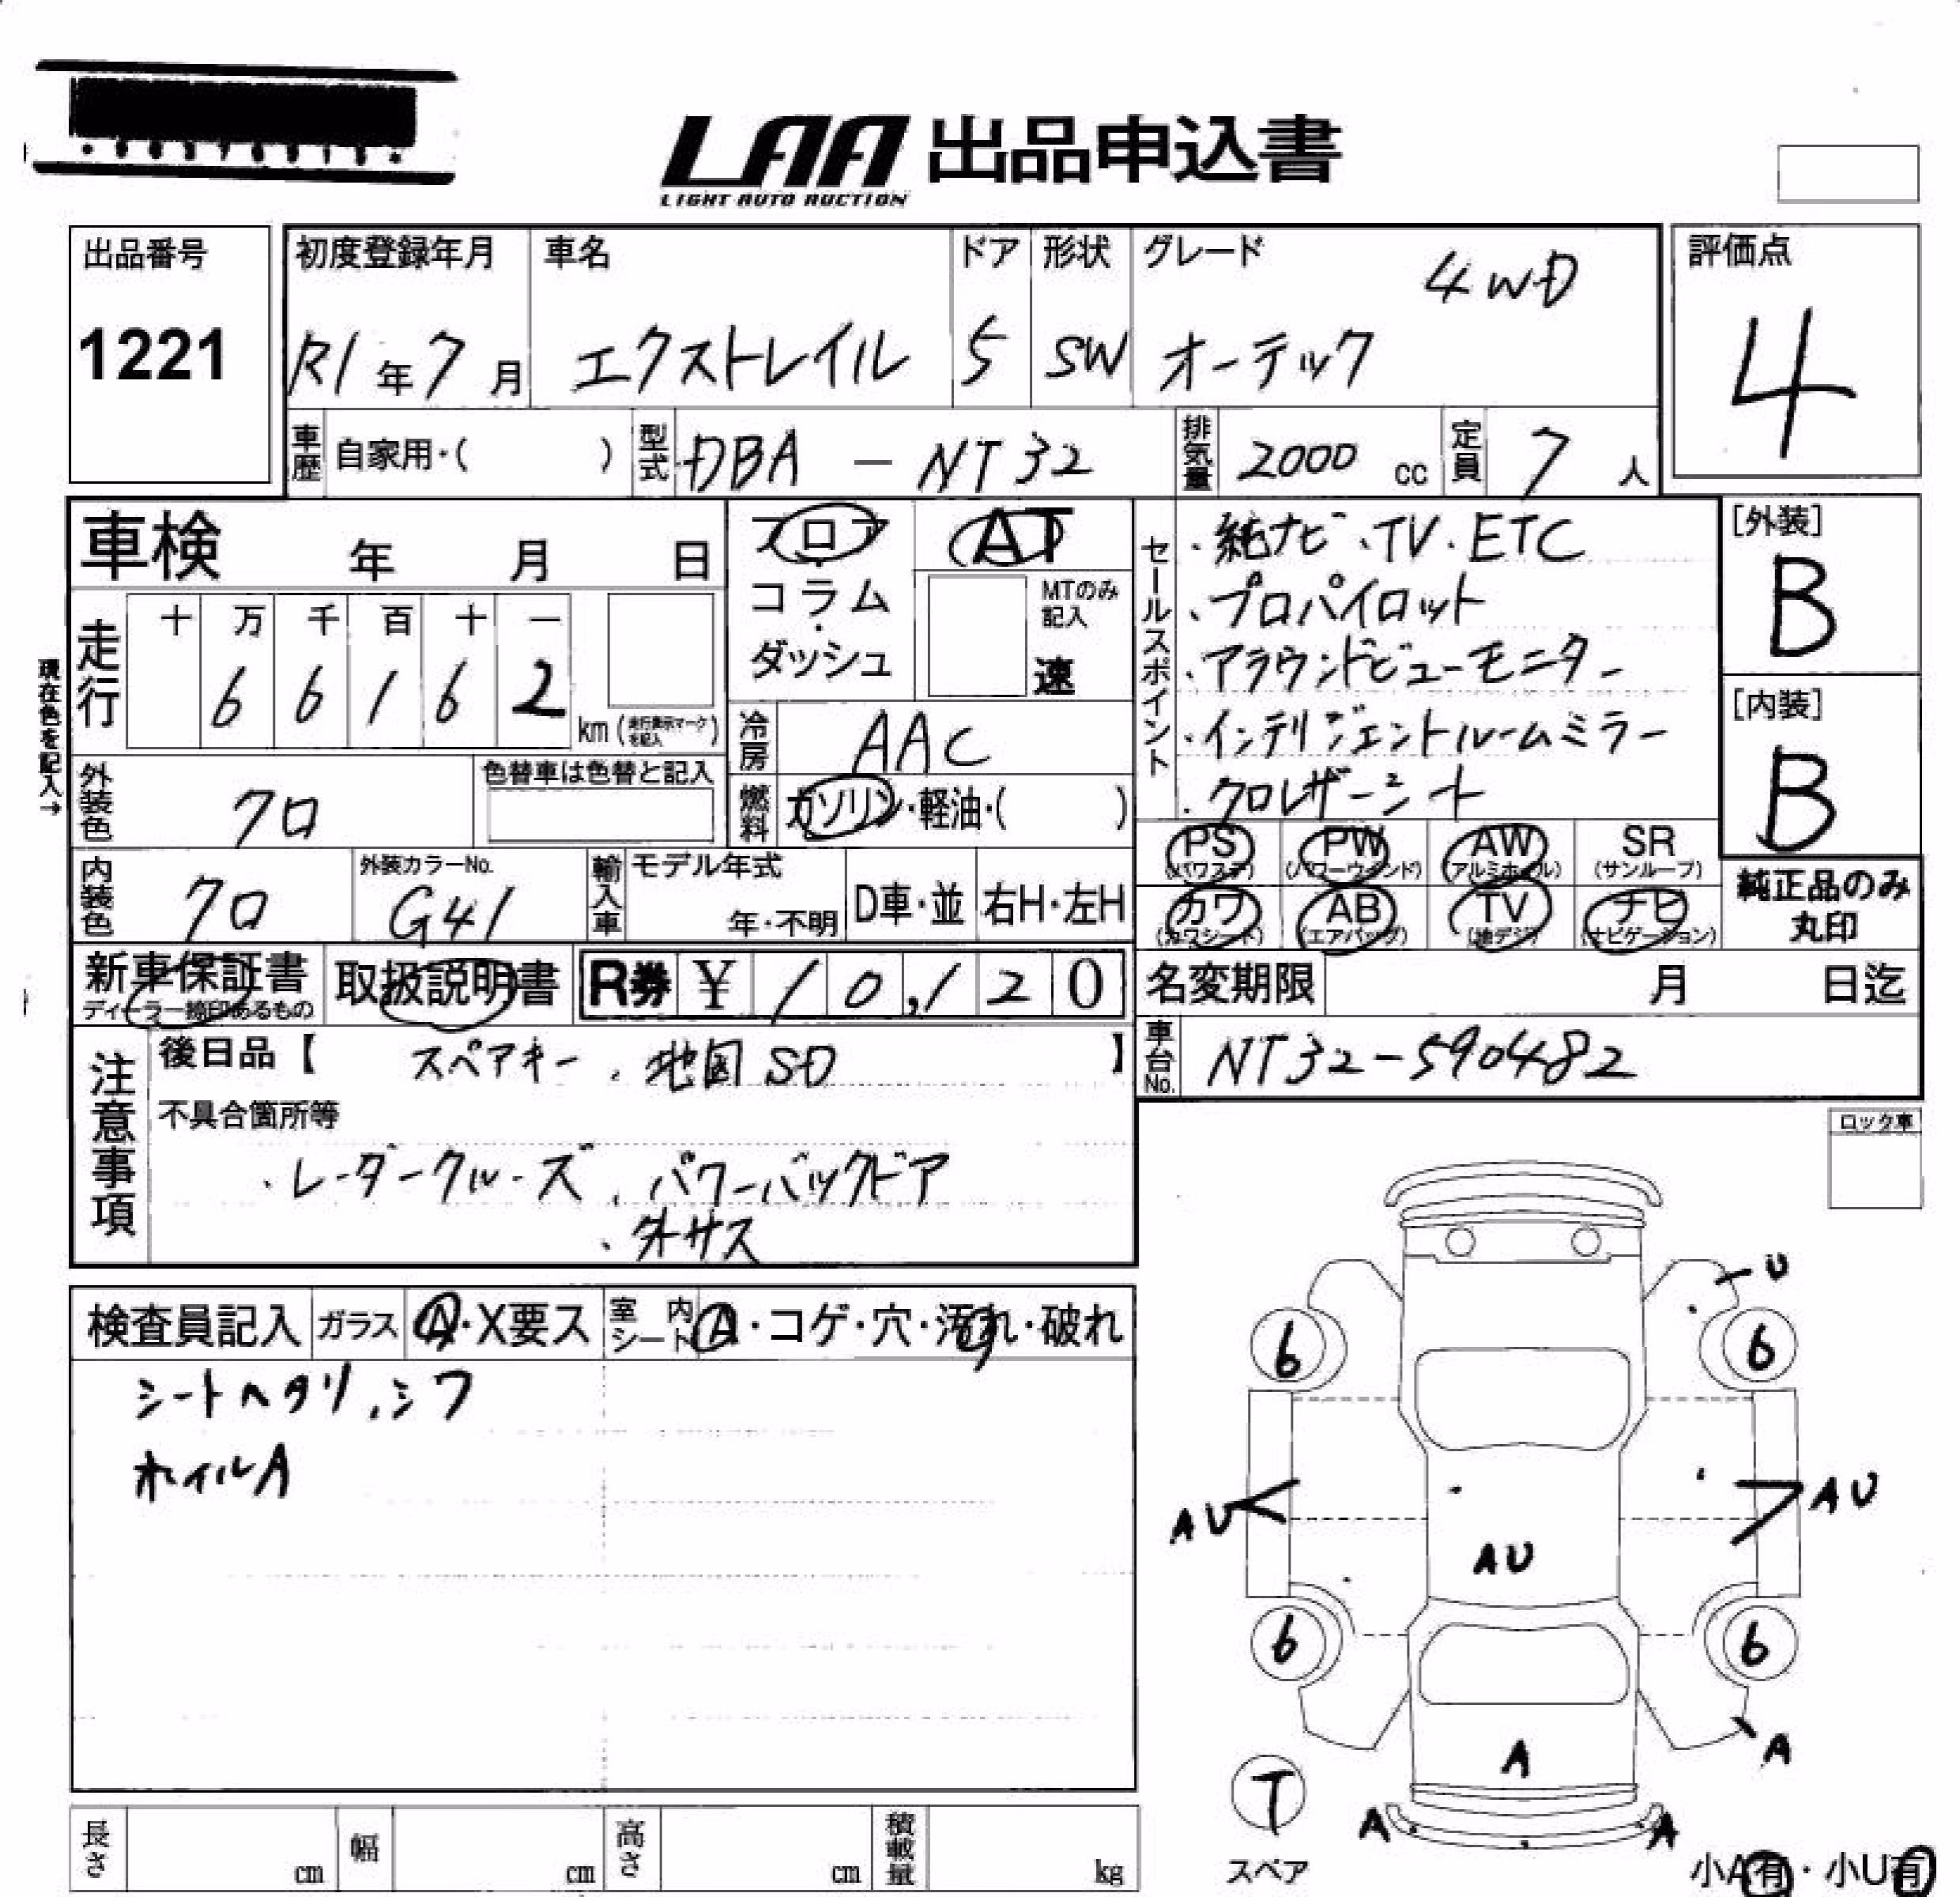 LAA 出品申込書
LIGHT AUTO AUCTION
出品番号
1221
初度登録年月 車名 ドア 形状 グレード 4WD
R1年7月 エクストレイル 5 SW オーテック
評価点
4
車歴 自家用・( ) 型式 DBA - NT32 排気量 2000 cc 定員 7 人
車検 年 月 日
フロア
コラム
・
ダッシュ
AT
MTのみ記入
速
セールスポイント
・純ナビ、TV・ETC
、プロパイロット
・アラウンドビューモニター
・インテリジェントルームミラー
・クロレザーシート
[外装]
B
[内装]
B
現在色を記入→
走行 十 万 千 百 十 一
6 6 1 6 2 km (走行表示マークを記入)
冷房 AAC
燃料 ガソリン・軽油・( )
外装色 クロ 色替車は色替と記入
内装色 クロ 外装カラーNo. G41 輸入車 モデル年式 年・不明 D車・並 右H・左H
PS (パワステ) PW (パワーウインド) AW (アルミホイル) SR (サンルーフ)
カワ (カワシート) AB (エアバッグ) TV (地デジ) ナビ (ナビゲーション)
純正品のみ
丸印
新車保証書 取扱説明書 R券 ¥ 10,120
ディーラー締印あるもの
名変期限 月 日迄
車台No. NT32-590482
注意事項
後日品【 スペアキー、地図SD 】
不具合箇所等
・レーダークルーズ、パワーバックドア
、外サス
ロック車
検査員記入 ガラス A・X要ス 室内シート A・コゲ・穴・汚れ・破れ
シートヘタリ、シワ
ホイルA
U
6 6
AU AU
AU
6 6
A
A
T
A A
スペア
小A有・小U有
長さ cm 幅 cm 高さ cm 積載量 kg